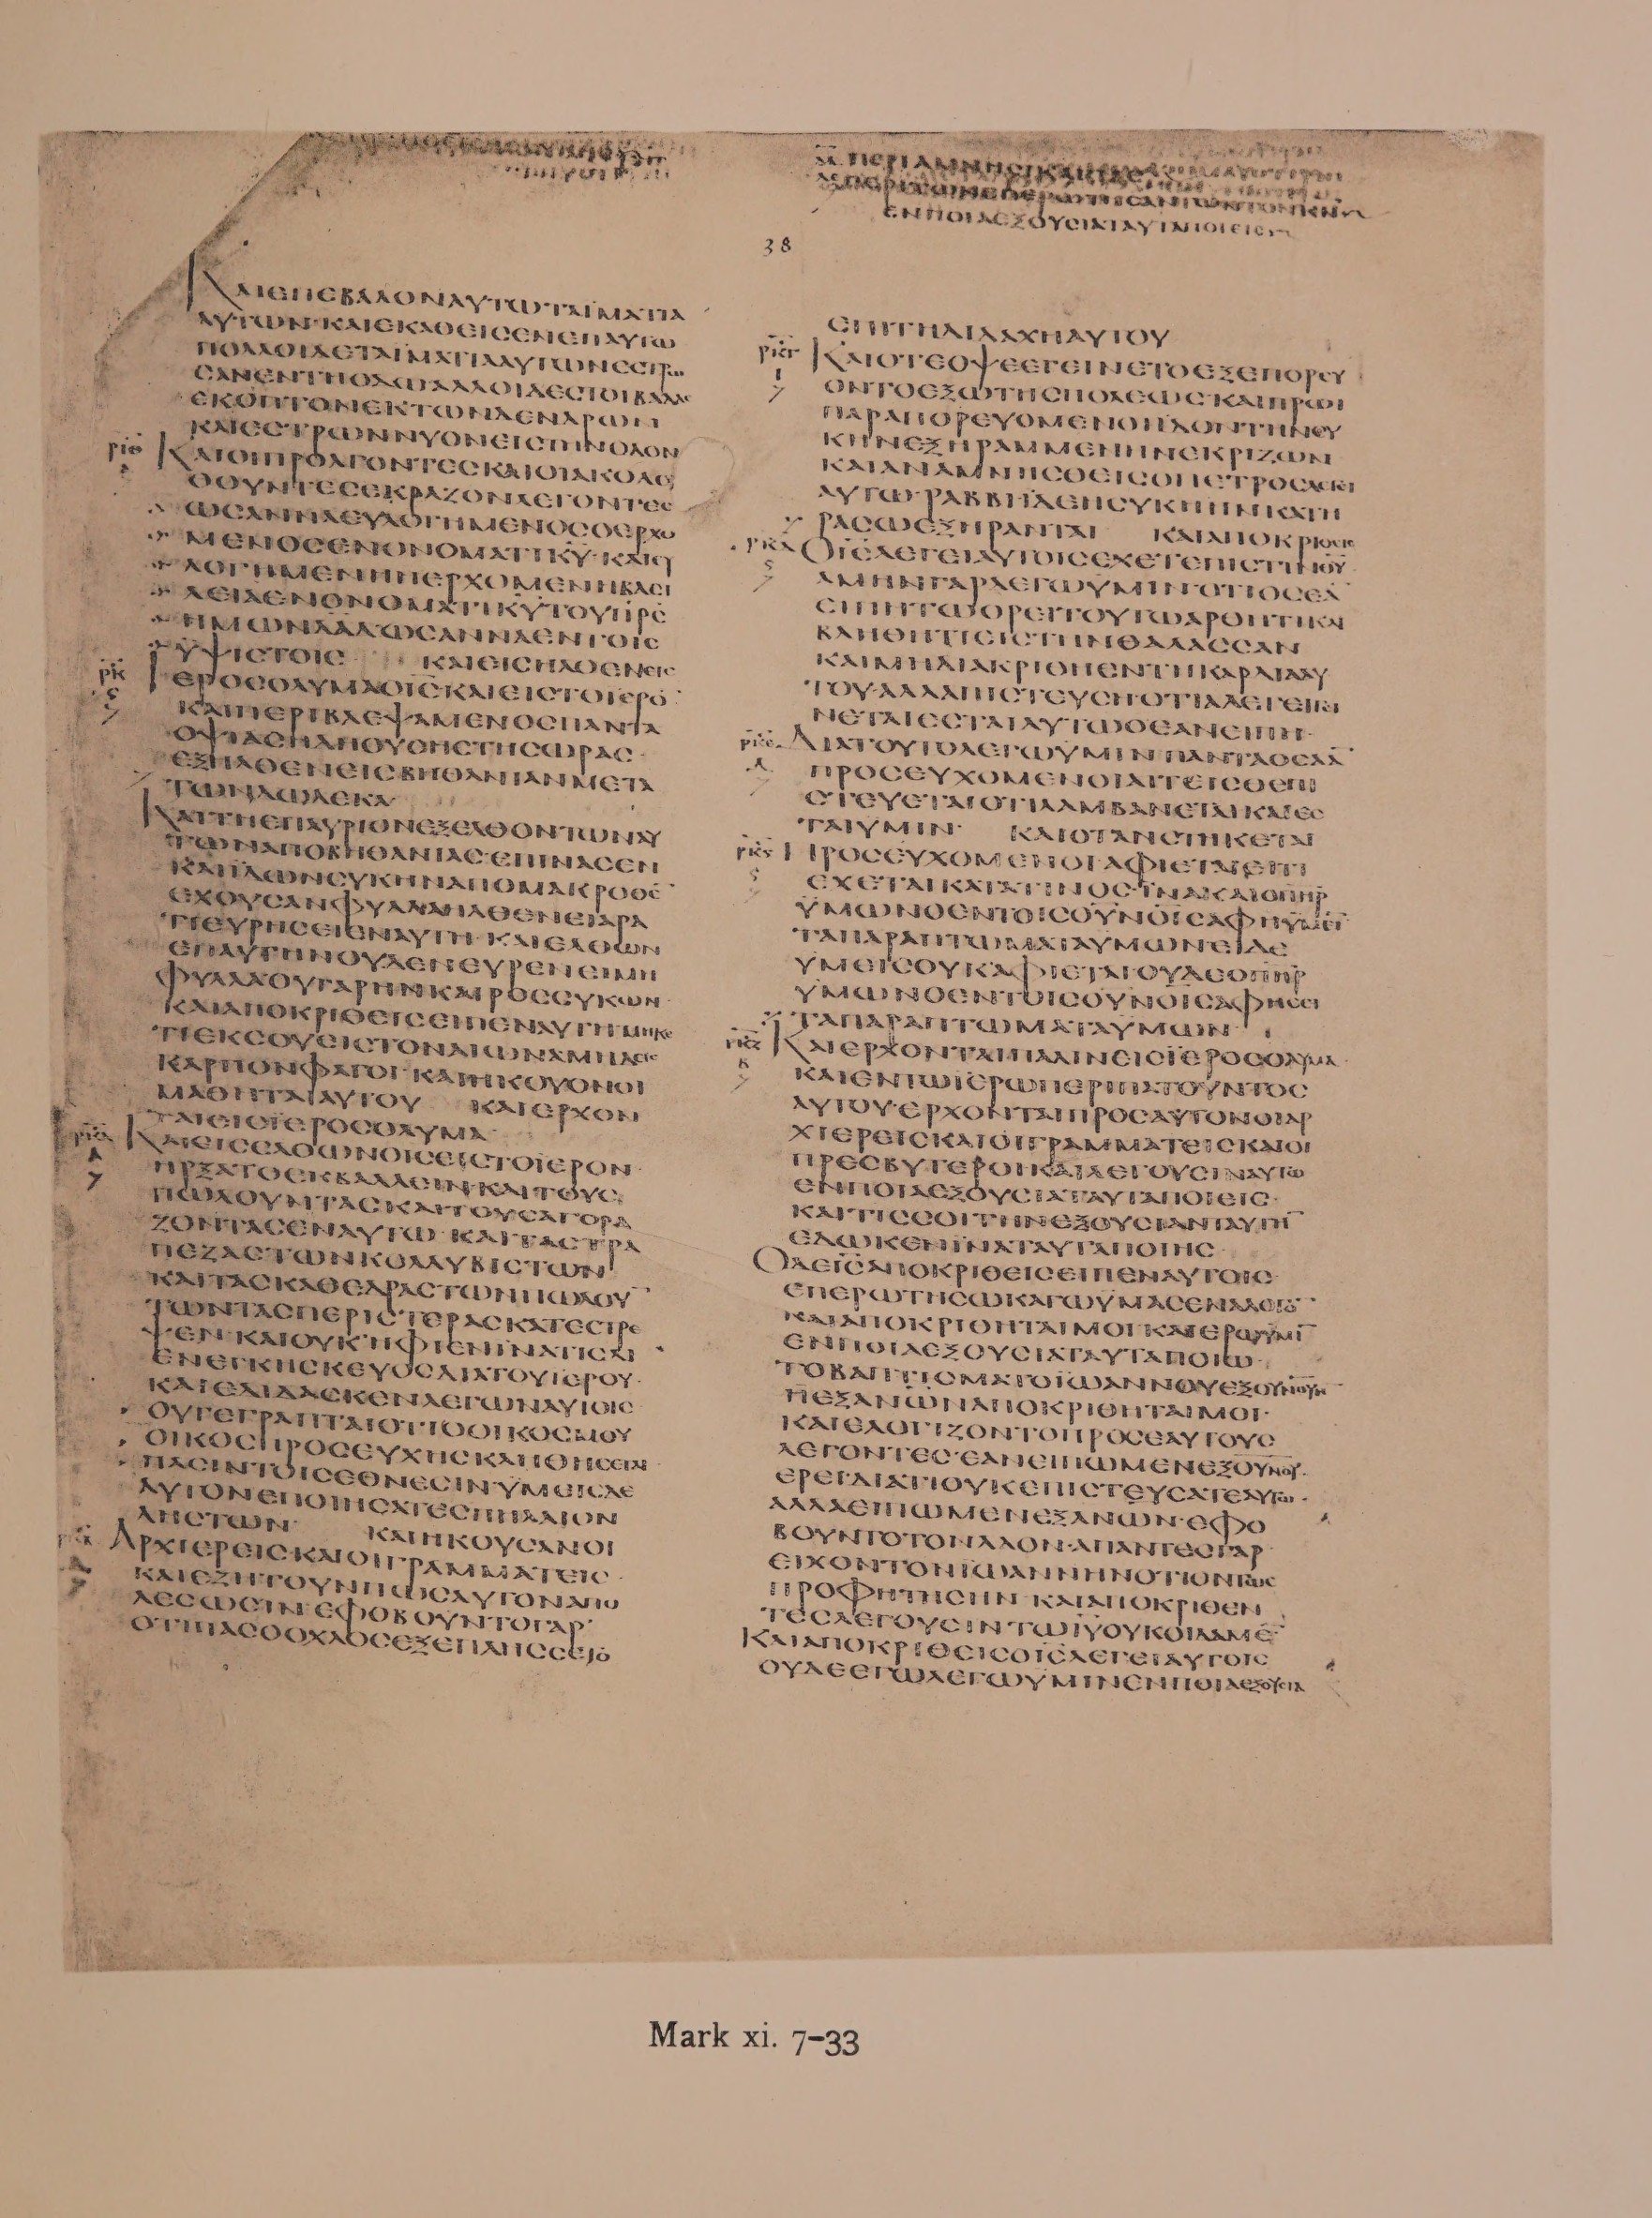 ΕΝΠΟΙΑΕΞΟΥCΙΑΤΑΥΤΑΠΟΙΕΙC
38
ΚΑΙΕΠΕΒΑΛΟΝΑΥΤΩΤΑΪΜΑΤΙΑ
ΑΥΤΩΝ·ΚΑΙΕΚΑΘΕΙCΕΝΕΠΑΥΤΩ
ΠΟΛΛΟΙΔΕΤΑΪΜΑΤΙΑΑΥΤΩΝΕCΤΡΩ
CΑΝΕΝΤΗΟΔΩΑΛΛΟΙΔΕCΤΟΙΒΑΔΑC
ΕΚΟΠΤΟΝΕΚΤΩΝΔΕΝΔΡΩΝ
ΚΑΙΕCΤΡΩΝΝΥΟΝΕΙCΤΗΝΟΔΟΝ
ΚΑΙΟΙΠΡΟΑΓΟΝΤΕCΚΑΙΟΙΑΚΟΛΟΥ
ΘΟΥΝΤΕCΕΚΡΑΖΟΝΛΕΓΟΝΤΕC
ΩCΑΝΝΑΕΥΛΟΓΗΜΕΝΟCΟΕΡΧΟ
ΜΕΝΟCΕΝΟΝΟΜΑΤΙΚΥ·ΚΑΙΕΥ
ΛΟΓΗΜΕΝΗΗΕΡΧΟΜΕΝΗΒΑCΙ
ΛΕΙΑΕΝΟΝΟΜΑΤΙΚΥΤΟΥΠΡC
ΗΜΩΝΔΑΔΩCΑΝΝΑΕΝΤΟΙC
ΥΨΙCΤΟΙC ΚΑΙΕΙCΗΛΘΕΝΕΙC
ΪΕΡΟCΟΛΥΜΑΟΙCΚΑΙΕΙCΤΟΪΕΡΟ
ΚΑΙΠΕΡΙΒΛΕΨΑΜΕΝΟCΠΑΝΤΑ
ΟΨΙΑCΗΔΗΟΥCΗCΤΗCΩΡΑC·
ΕΞΗΛΘΕΝΕΙCΒΗΘΑΝΙΑΝΜΕΤΑ
ΤΩΝΔΩΔΕΚΑ
ΚΑΙΤΗΕΠΑΥΡΙΟΝΕΞΕΛΘΟΝΤΩΝΑΥ
ΤΩΝΑΠΟΒΗΘΑΝΙΑCΕΠΙΝΑCΕΝ
ΚΑΙΪΔΩΝCΥΚΗΝΑΠΟΜΑΚΡΟΘΕ
ΕΧΟΥCΑΝΦΥΛΛΑΗΛΘΕΝΕΙΑΡΑ
ΤΙΕΥΡΗCΕΙΕΝΑΥΤΗ·ΚΑΙΕΛΘΩΝ
ΕΠΑΥΤΗΝΟΥΔΕΝΕΥΡΕΝΕΙΜΗ
ΦΥΛΛΑΟΥΓΑΡΗΝΚΑΙΡΟCCΥΚΩΝ
ΚΑΙΑΠΟΚΡΙΘΕΙCΕΙΠΕΝΑΥΤΗΜΗΚΕ
ΤΙΕΚCΟΥΕΙCΤΟΝΑΙΩΝΑΜΗΔΕΙC
ΚΑΡΠΟΝΦΑΓΟΙ·ΚΑΙΗΚΟΥΟΝΟΙ
ΜΑΘΗΤΑΙΑΥΤΟΥ ΚΑΙΕΡΧΟΝ
ΤΑΙΕΙCΪΕΡΟCΟΛΥΜΑ
ΚΑΙΕΙCΕΛΘΩΝΟΙCΕΙCΤΟΪΕΡΟΝ
ΗΡΞΑΤΟΕΚΒΑΛΛΕΙΝ·ΚΑΙΤΟΥC
ΠΩΛΟΥΝΤΑCΚΑΙΤΟΥCΑΓΟΡΑ
ΖΟΝΤΑCΕΝΑΥΤΩ·ΚΑΙΤΑCΤΡΑ
ΠΕΖΑCΤΩΝΚΟΛΛΥΒΙCΤΩΝ
ΚΑΙΤΑCΚΑΘΕΔΡΑCΤΩΝΠΩΛΟΥ
ΤΩΝΤΑCΠΕΡΙCΤΕΡΑCΚΑΤΕCΤΡΕ
ΨΕΝ·ΚΑΙΟΥΚΗΦΙΕΝΪΝΑΤΙCΔΙ
ΕΝΕΓΚΗCΚΕΥΟCΔΙΑΤΟΥΪΕΡΟΥ·
ΚΑΙΕΔΙΔΑCΚΕΝΛΕΓΩΝΑΥΤΟΙC
ΟΥΓΕΓΡΑΠΤΑΙΟΤΙΟΟΙΚΟCΜΟΥ
ΟΙΚΟCΠΡΟCΕΥΧΗCΚΛΗΘΗCΕΤΑΙ
ΠΑCΙΝΤΟΙCΕΘΝΕCΙΝ·ΥΜΕΙCΔΕ
ΑΥΤΟΝΕΠΟΙΗCΑΤΕCΠΗΛΑΙΟΝ
ΛΗCΤΩΝ ΚΑΙΗΚΟΥCΑΝΟΙ
ΑΡΧΙΕΡΕΙCΚΑΙΟΙΓΡΑΜΜΑΤΕΙC
ΚΑΙΕΖΗΤΟΥΝΠΩCΑΥΤΟΝΑΠΟ
ΛΕCΩCΙΝ·ΕΦΟΒΟΥΝΤΟΓΑΡ
ΟΤΙΠΑCΟΟΧΛΟCΕΞΕΠΛΗCCΕΤΟ
ΕΠΙΤΗΔΙΔΑΧΗΑΥΤΟΥ
ΚΑΙΟΤΕΟΨΕΕΓΕΙΝΕΤΟΕΞΕΠΟΡΕΥ
ΟΝΤΟΕΞΩΤΗCΠΟΛΕΩC·ΚΑΙΠΡΩΙ
ΠΑΡΑΠΟΡΕΥΟΜΕΝΟΙΪΔΟΝΤΗΝCΥ
ΚΗΝΕΞΗΡΑΜΜΕΝΗΝΕΚΡΙΖΩΝ
ΚΑΙΑΝΑΜΝΗCΘΕΙCΟΠΕΤΡΟCΛΕΓΕΙ
ΑΥΤΩ·ΡΑΒΒΗΪΔΕΗCΥΚΗΗΝΚΑΤΗ
ΡΑCΩΕΞΗΡΑΝΤΑΙ ΚΑΙΑΠΟΚΡΙΘΕΙC
ΟΙCΛΕΓΕΙΑΥΤΟΙCΕΧΕΤΕΠΙCΤΙΝΘΥ
ΑΜΗΝΓΑΡΛΕΓΩΥΜΙΝ·ΟΤΙΟCΕΑ
ΕΙΠΗΤΩΟΡΕΙΤΟΥΤΩΑΡΘΗΤΙΚΑΙ
ΒΛΗΘΗΤΙΕΙCΤΗΝΘΑΛΑCCΑΝ
ΚΑΙΜΗΔΙΑΚΡΙΘΗΕΝΤΗΚΑΡΔΙΑΑΥ
ΤΟΥ·ΑΛΛΑΠΙCΤΕΥCΗΟΤΙΑΛΕΓΕΙΓΕΙ
ΝΕΤΑΙΕCΤΑΙΑΥΤΩΟΕΑΝΕΙΠΗ·
ΔΙΑΤΟΥΤΟΛΕΓΩΥΜΙΝ·ΠΑΝΤΑΟCΑΑ
ΠΡΟCΕΥΧΟΜΕΝΟΙΑΙΤΕΙCΘΕΠΙ
CΤΕΥΕΤΑΙΟΤΙΛΑΜΒΑΝΕΤΑΙΚΑΙΕC
ΤΑΙΥΜΙΝ· ΚΑΙΟΤΑΝCΤΗΚΕΤΑΙ
ΠΡΟCΕΥΧΟΜΕΝΟΙΑΦΙΕΤΑΙΕΙΤΙ
ΕΧΕΤΑΙΚΑΤΑΤΙΝΟC·ΪΝΑΚΑΙΟΠΗΡ
ΥΜΩΝΟΕΝΤΟΙCΟΥΝΟΙCΑΦΗΥΜΙΝ
ΤΑΠΑΡΑΠΤΩΜΑΤΑΥΜΩΝΕΙΔΕ
ΥΜΕΙCΟΥΚΑΦΙΕΤΑΙΟΥΔΕΟΠΗΡ
ΥΜΩΝΟΕΝΤΟΙCΟΥΝΟΙCΑΦΗCΕΙ
ΤΑΠΑΡΑΠΤΩΜΑΤΑΥΜΩΝ·
ΚΑΙΕΡΧΟΝΤΑΙΠΑΛΙΝΕΙCΪΕΡΟCΟΛΥΜΑ·
ΚΑΙΕΝΤΩΪΕΡΩΠΕΡΙΠΑΤΟΥΝΤΟC
ΑΥΤΟΥ·ΕΡΧΟΝΤΑΙΠΡΟCΑΥΤΟΝΟΙΑΡ
ΧΙΕΡΕΙCΚΑΙΟΙΓΡΑΜΜΑΤΕΙCΚΑΙΟΙ
ΠΡΕCΒΥΤΕΡΟΙΚΑΙΛΕΓΟΥCΙΝΑΥΤΩ
ΕΝΠΟΙΑΕΞΟΥCΙΑΤΑΥΤΑΠΟΙΕΙC·
ΚΑΙΤΙCCΟΙΤΗΝΕΞΟΥCΙΑΝΤΑΥΤΗ
ΕΔΩΚΕΝΪΝΑΤΑΥΤΑΠΟΙΗC
ΟΔΕΙCΑΠΟΚΡΙΘΕΙCΕΙΠΕΝΑΥΤΟΙC
ΕΠΕΡΩΤΗCΩΚΑΓΩΥΜΑCΕΝΑΛΟΓΟ
ΚΑΙΑΠΟΚΡΙΘΗΤΑΙΜΟΙ·ΚΑΙΕΡΩΥΜΙ
ΕΝΠΟΙΑΕΞΟΥCΙΑΤΑΥΤΑΠΟΙΩ·
ΤΟΒΑΠΤΙCΜΑΤΟΪΩΑΝΝΟΥΕΞΟΥΝΟΥΗΝ
ΗΕΞΑΝΩΝΑΠΟΚΡΙΘΗΤΑΙΜΟΙ·
ΚΑΙΕΛΟΓΙΖΟΝΤΟΠΡΟCΕΑΥΤΟΥC
ΛΕΓΟΝΤΕC·ΕΑΝΕΙΠΩΜΕΝΕΞΟΥΝΟΥ·
ΕΡΕΙΔΙΑΤΙΟΥΚΕΠΙCΤΕΥCΑΤΕΑΥΤΩ·
ΑΛΛΑΕΙΠΩΜΕΝΕΞΑΝΩΝ·ΕΦΟ
ΒΟΥΝΤΟΤΟΝΛΑΟΝ·ΑΠΑΝΤΕCΓΑΡ
ΕΙΧΟΝΤΟΝΪΩΑΝΝΗΝΟΤΙΟΝΤΩC
ΠΡΟΦΗΤΗCΗΝ·ΚΑΙΑΠΟΚΡΙΘΕΝ
ΤΕCΛΕΓΟΥCΙΝΤΩΙΥΟΥΚΟΙΔΑΜΕ
ΚΑΙΑΠΟΚΡΙΘΕΙCΟΙCΛΕΓΕΙΑΥΤΟΙC
ΟΥΔΕΕΓΩΛΕΓΩΥΜΙΝΕΝΠΟΙΑΕΞΟΥCΙΑ
Mark xi. 7–33